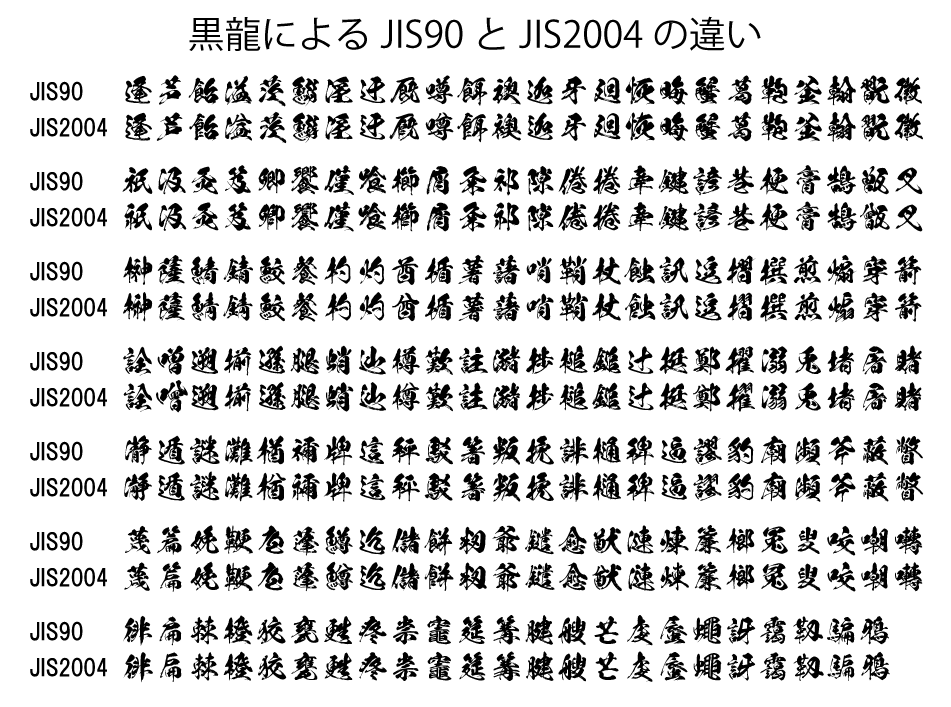 黒龍による JIS90 と JIS2004 の違い
JIS90 逢芦飴溢茨鰯淫迂厩噂餌襖迦牙廻恢晦蟹葛鞄釜翰翫徽
JIS2004 逢芦飴溢茨鰯淫迂厩噂餌襖迦牙廻恢晦蟹葛鞄釜翰翫徽
JIS90 祇汲灸笈卿饗僅喰櫛屑粂祁隙倦捲牽鍵諺巷梗膏鵠甑叉
JIS2004 祇汲灸笈卿饗僅喰櫛屑粂祁隙倦捲牽鍵諺巷梗膏鵠甑叉
JIS90 榊薩鯖錆鮫餐杓灼酋楯薯藷哨鞘杖蝕訊逗摺撰煎煽穿箭
JIS2004 榊薩鯖錆鮫餐杓灼酋楯薯藷哨鞘杖蝕訊逗摺撰煎煽穿箭
JIS90 詮噌遡揃遜腿蛸辿樽歎註瀦捗槌鎚辻挺鄭擢溺兎堵屠賭
JIS2004 詮噌遡揃遜腿蛸辿樽歎註瀦捗槌鎚辻挺鄭擢溺兎堵屠賭
JIS90 瀞遁謎灘楢禰牌這秤駁箸叛挽誹樋稗逼謬豹廟瀕斧蔽瞥
JIS2004 瀞遁謎灘楢禰牌這秤駁箸叛挽誹樋稗逼謬豹廟瀕斧蔽瞥
JIS90 蔑篇娩鞭庖蓬鱒迄儲餅籾爺鑓愈猷漣煉簾榔冤叟咬嘲囀
JIS2004 蔑篇娩鞭庖蓬鱒迄儲餅籾爺鑓愈猷漣煉簾榔冤叟咬嘲囀
JIS90 徘扁棘橙狡甕甦疼祟竈筵篝腱艘芒虔蜃蠅訝靄靱騙鴉
JIS2004 徘扁棘橙狡甕甦疼祟竈筵篝腱艘芒虔蜃蠅訝靄靱騙鴉